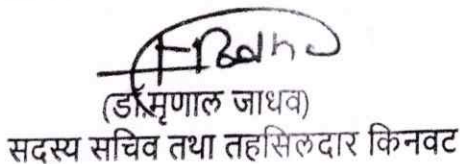 (डॉ.मृणाल जाधव)
सदस्य सचिव तथा तहसिलदार किनवट